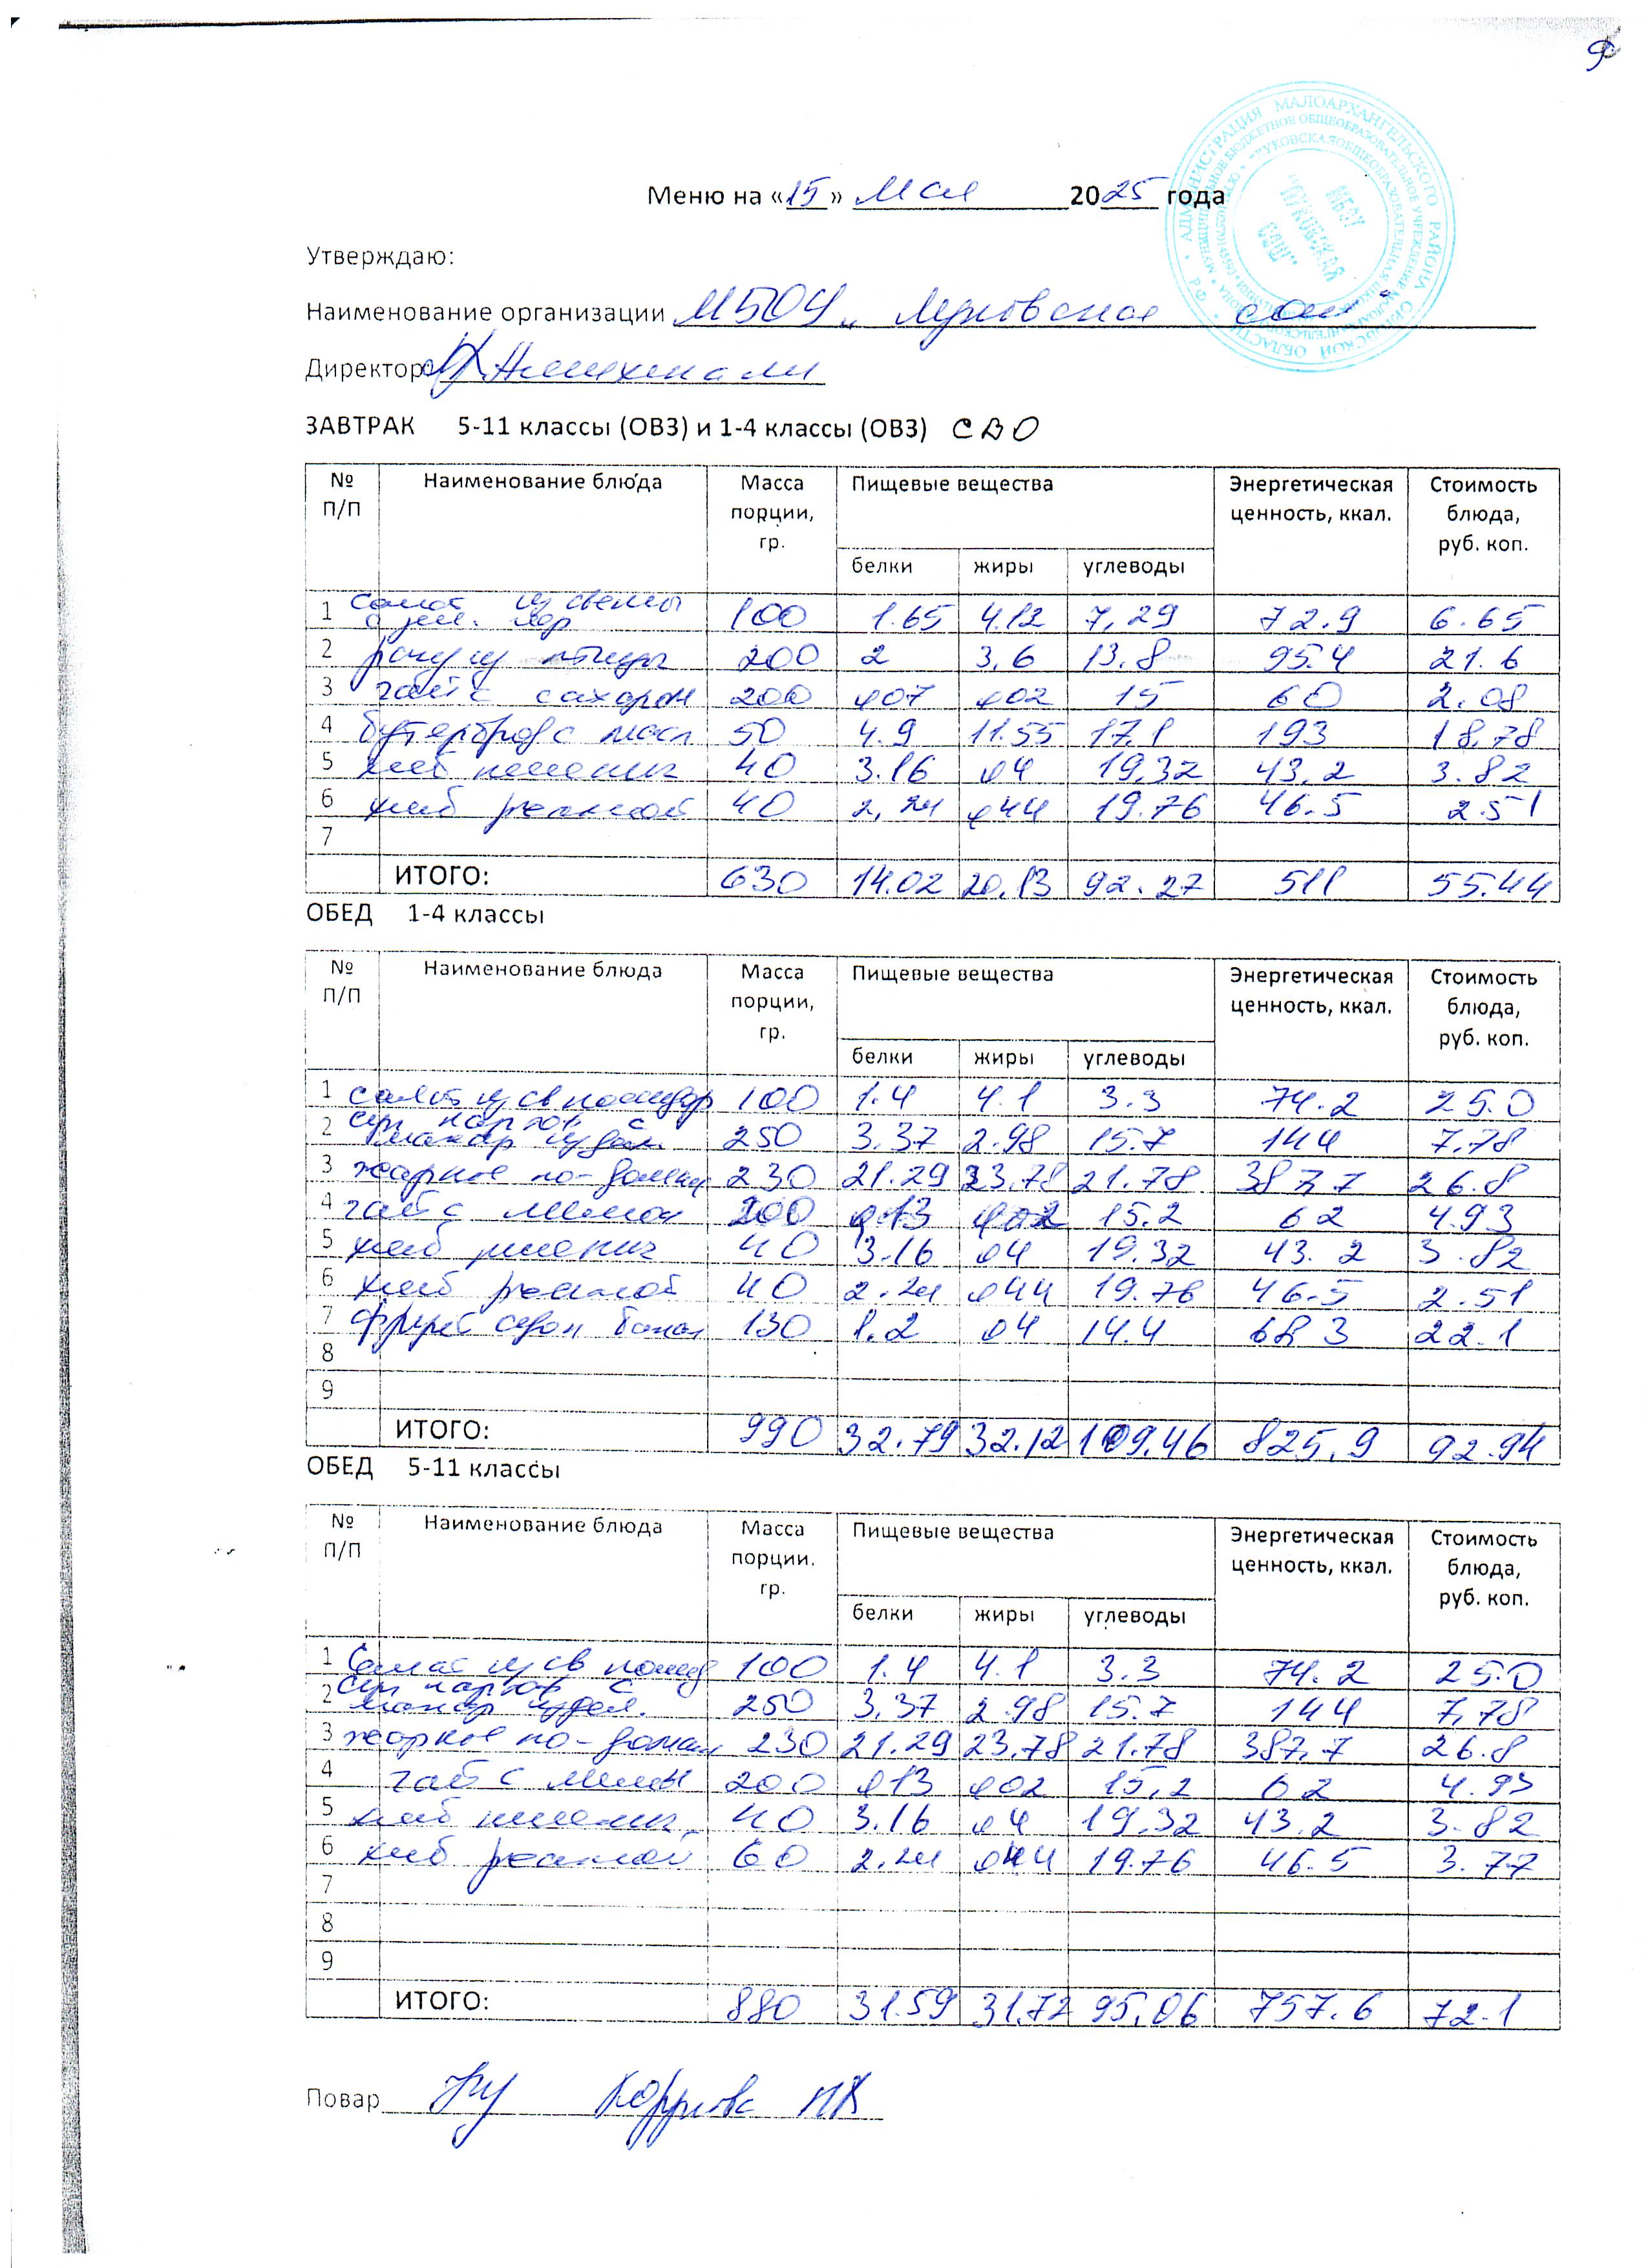 Меню на «15» Мая 2025 года
Утверждаю:
Наименование организации МБОУ „Луковская сош"
Директор
ЗАВТРАК 5-11 классы (ОВЗ) и 1-4 классы (ОВЗ) СВО
№ П/П Наименование блюда Масса порции, гр. Пищевые вещества Энергетическая ценность, ккал. Стоимость блюда, руб. коп.
белки жиры углеводы
1 салат из свеклы с зел. гор 100 1.65 4.12 7,29 72.9 6.65
2 рагу из птицы 200 2 3,6 13,8 95.4 21.6
3 чай с сахаром 200 007 002 15 60 2.08
4 бутерброд с масл 50 4.9 11.55 17,1 193 18,78
5 хлеб пшенич 40 3.16 04 19,32 43,2 3.82
6 хлеб ржаной 40 2,24 044 19.76 46.5 2.51
7
ИТОГО: 630 14.02 20,13 92.27 511 55.44
ОБЕД 1-4 классы
№ П/П Наименование блюда Масса порции, гр. Пищевые вещества Энергетическая ценность, ккал. Стоимость блюда, руб. коп.
белки жиры углеводы
1 салат из св помидор 100 1.4 4.1 3.3 74.2 25.0
2 суп картоф с макар издел. 250 3.37 2.98 15.7 144 7,78
3 жаркое по-домаш 230 21.29 23,78 21.78 387,7 26.8
4 чай с лимон 200 013 002 15.2 62 4.93
5 хлеб пшенич 40 3.16 04 19.32 43.2 3.82
6 хлеб ржаной 40 2.24 044 19.76 46.5 2.51
7 фрукт сезон банан 130 1.2 04 14.4 68 3 22.1
8
9
ИТОГО: 990 32.79 32.12 109,46 825,9 92.94
ОБЕД 5-11 классы
№ П/П Наименование блюда Масса порции. гр. Пищевые вещества Энергетическая ценность, ккал. Стоимость блюда, руб. коп.
белки жиры углеводы
1 Салат из св помид 100 1.4 4.1 3.3 74.2 25.0
2 суп картоф с макар издел. 250 3,37 2.98 15.7 144 7,78
3 жаркое по-домаш 230 21.29 23,78 21.78 387,7 26.8
4 чай с лимон 200 013 002 15,2 62 4.93
5 хлеб пшенич. 40 3.16 04 19,32 43.2 3.82
6 хлеб ржаной 60 2.24 044 19.76 46.5 3.77
7
8
9
ИТОГО: 880 31.59 31,72 95,06 757.6 72.1
Повар